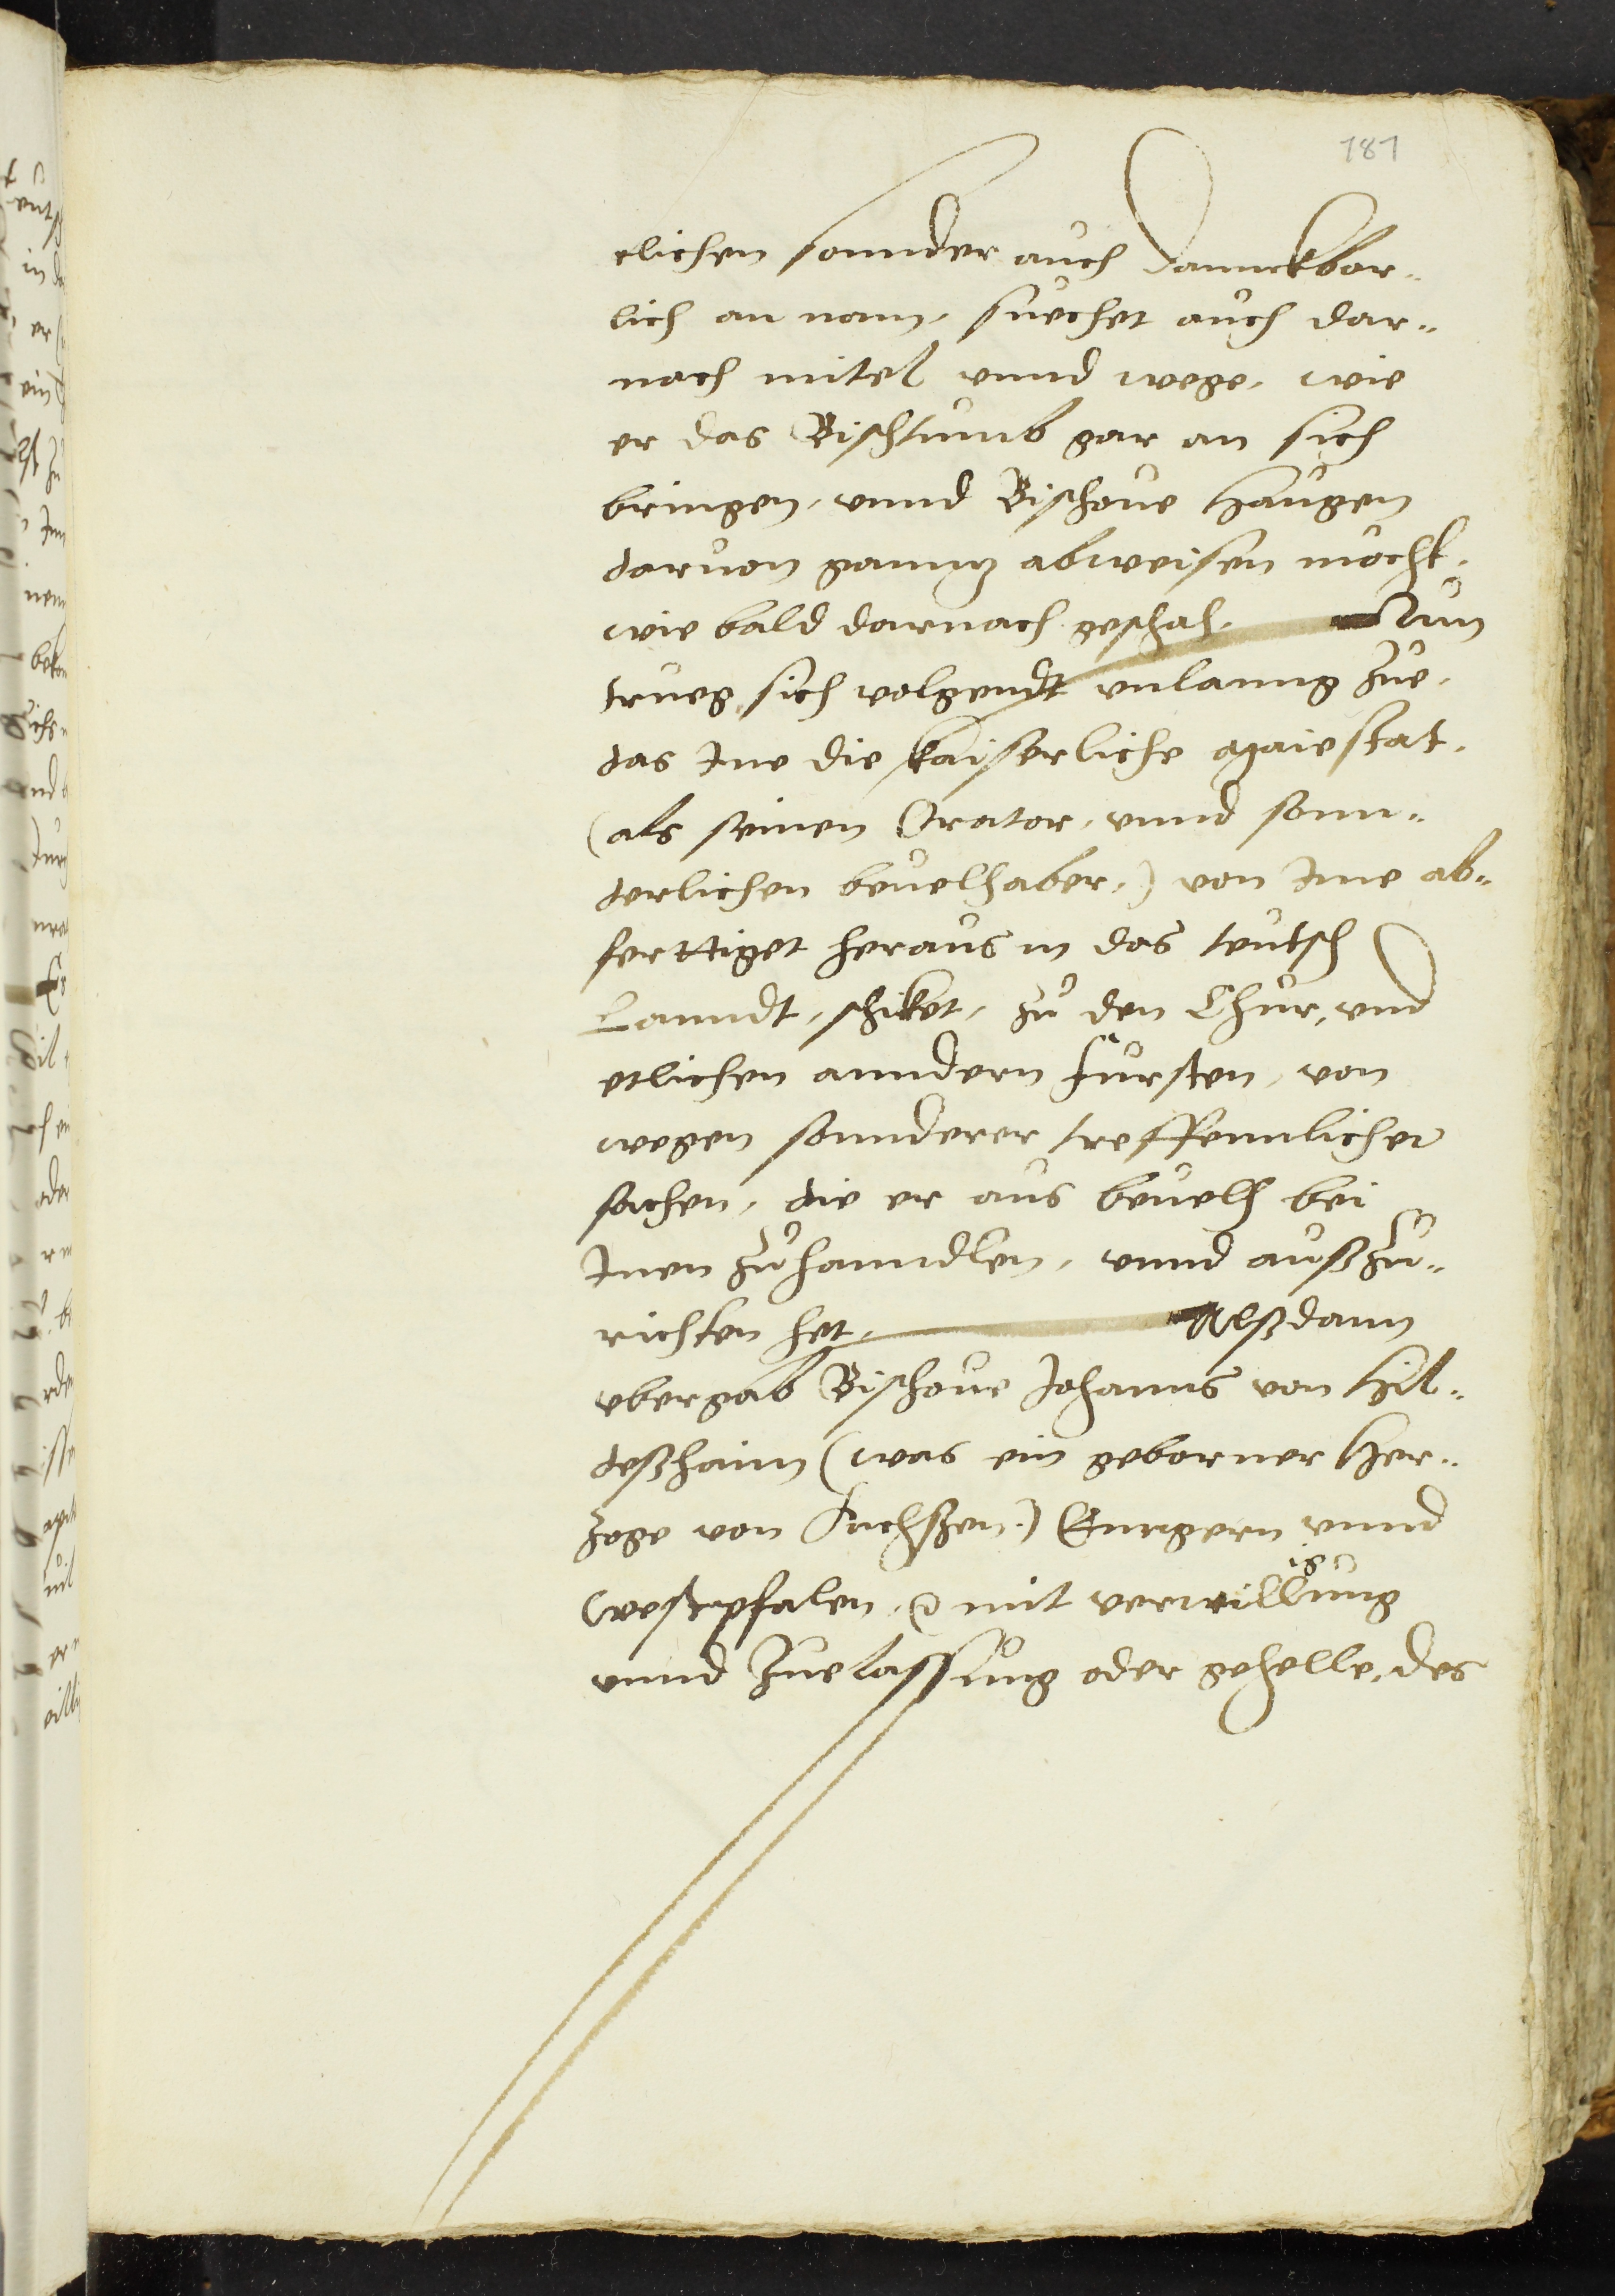 181
tlichen sonnder auch dannckbar„
lich an nam, suechet auch dar„
nach mitel vnnd wege, wie
er das Bischtumb gar an sich
bringen, vnnd Bischoue Haugen
daruon ganntz abweisen möcht,
wie bald darnach geschah. Nun
trueg sich volgendt vnlanng zue,
das Ine die kaiserliche Maiestat,
(als seinen Orator, vnnd sonn„
derlichen beuelhaber,) von Ime ab„
ferttiget heraus in das teutsch
Lanndt, schiket, zů den Chur, vnd
etlichen anndern fürsten, von
wegen sonnderer treffennlicher
sachen, die er aus beuelh bei
Inen zůhanndlen, vnnd außzů„
richten het, Alßdann
vbergab Bischoue Johanns von Hil„
deßhaim (was ein geborner Her„
zoge von Sachssen) Enngern vnnd
Westpfalen, &c mit verwilligung
vnnd zuelassung oder gehelle, des